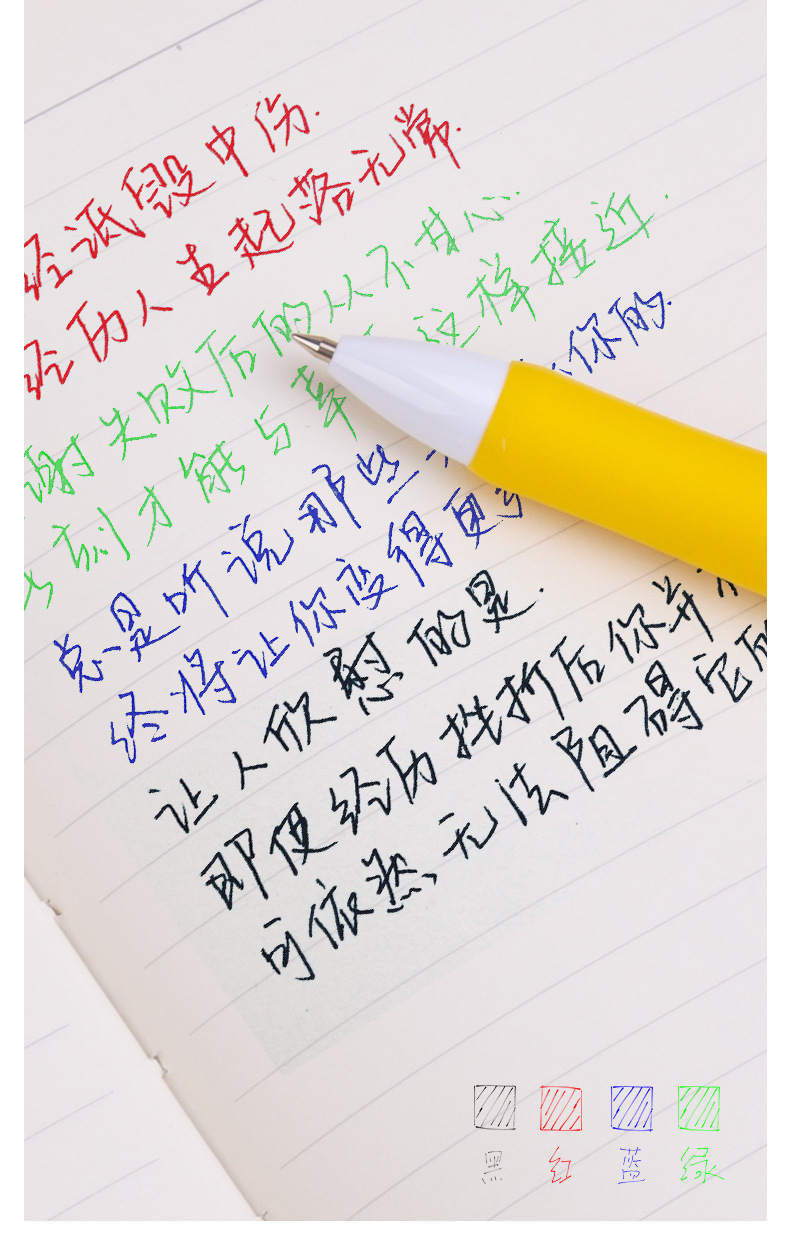 经诋毁中伤.
经历人生起落无常.
谢失败后的从不甘心.
刻才能与幸 这样接近.
总是听说那些 你的.
终将让你变得更
让人欣慰的是.
即便经历挫折后你并
可依然无法阻碍它的
黑 红 蓝 绿